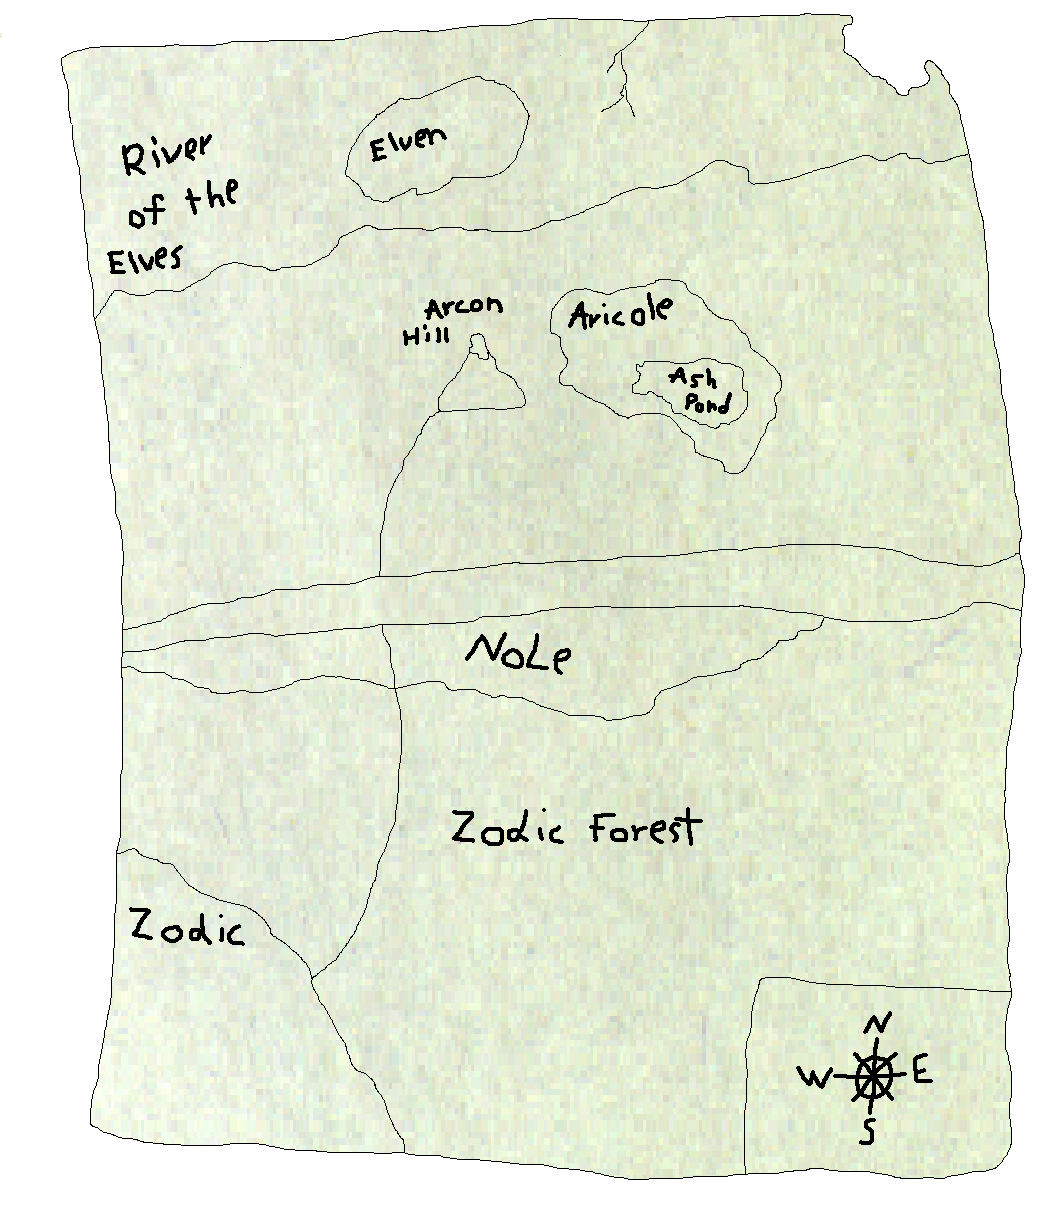 River
of the
Elves
Elven
Arcon
Hill
Aricole
Ash
Pond
NoLe
Zodic Forest
Zodic
N
W E
S